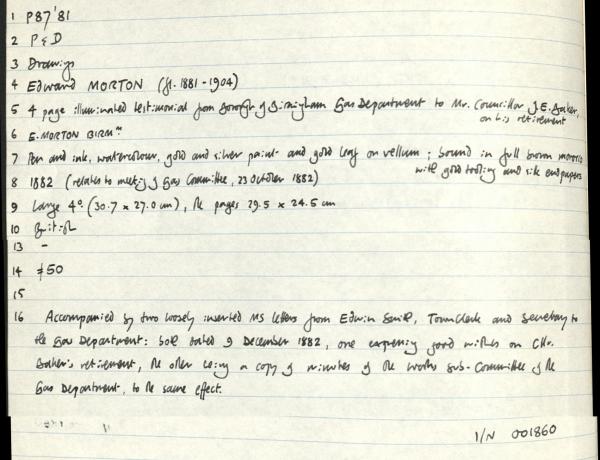 1 P87'81
2 P & D
3 Drawings
4 Edward MORTON (fl. 1881-1904)
5 4 page illuminated testimonial from Borough of Birmingham Gas Department to Mr. Councillor J.E. Baker,
on his retirement
6 E. MORTON BIRMm
7 Pen and ink, watercolour, gold and silver paint and gold leaf on vellum; bound in full brown morocco
with gold tooling and silk endpapers
8 1882 (relates to meeting of Gas Committee, 23 October 1882)
9 Large 4o. (30.7 x 27.0 cm), the pages 29.5 x 24.5 cm
10 British
13 -
14 £50
15
16 Accompanied by two loosely inserted MS letters from Edwin Smith, Town Clerk and Secretary to
the Gas Department: both dated 9 December 1882, one expressing good wishes on Cllr.
Baker's retirement, the other being a copy of minutes of the Works Sub-Committee of the
Gas Department, to the same effect.
I/N 001860